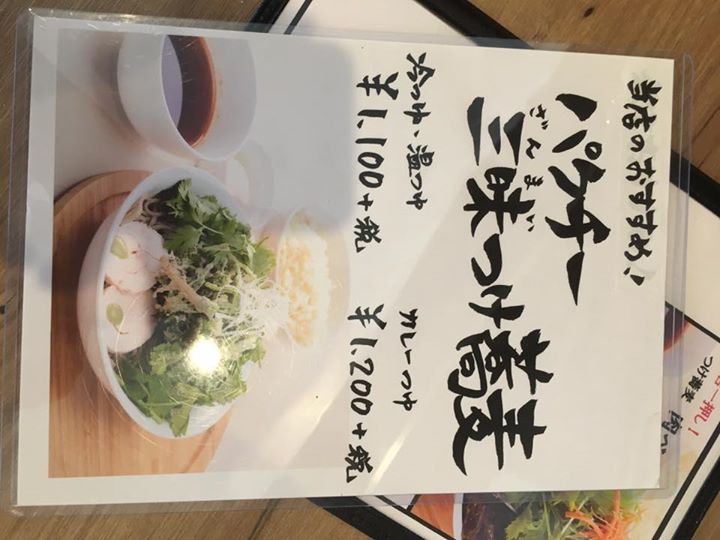 当店のおすすめ!
パクチー
ざんまい
三昧つけ蕎麦
冷つゆ・温つゆ
¥1,100+税
カレーつゆ
¥1,200+税
一押し!
つけ蕎麦